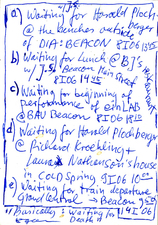 w/ J.S.
a) Waiting for Harald Plochberger
@ the benches outside
of DIA:BEACON 8 I 06
b) Waiting for Lunch @ BJ's
w/ J.S. Beacon Main Street
8 I 06
c) Waiting for beginning of
performance of ein LAB
@ BAU Beacon 8 I 06
d) Waiting for Harald Plochberger
@ Richard Kroehling +
Laura house
in Cold Spring 9 I 06
e) Waiting for train departure
Grand Central → Beacon
Basically: Waiting for
Death